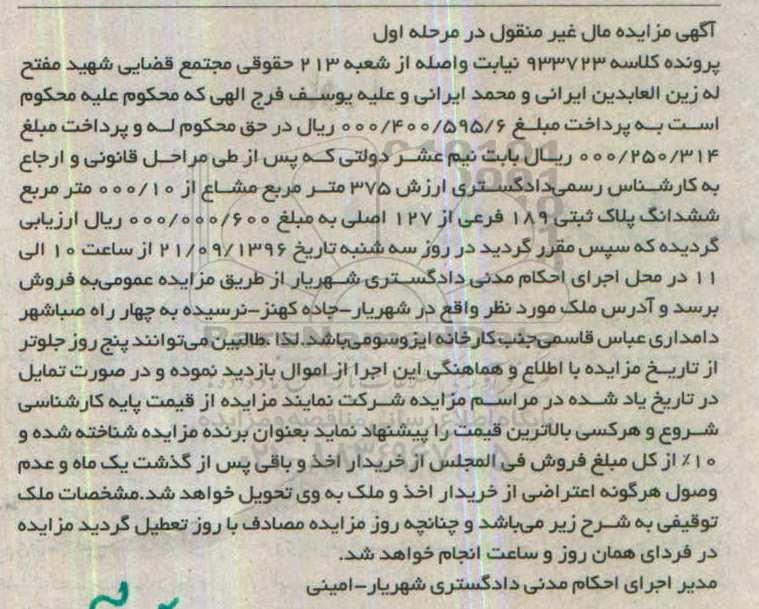 آگهی مزایده مال غیر منقول در مرحله اول
پرونده کلاسه ۹۳۳۷۲۳ نیابت واصله از شعبه ۲۱۳ حقوقی مجتمع قضایی شهید مفتح
له زین العابدین ایرانی و محمد ایرانی و علیه یوسف فرج الهی که محکوم علیه محکوم
است به پرداخت مبلغ ۰۰۰/۴۰۰/۵۹۵/۶ ریال در حق محکوم له و پرداخت مبلغ
۰۰۰/۲۵۰/۳۱۴ ریال بابت نیم عشر دولتی که پس از طی مراحل قانونی و ارجاع
به کارشناس رسمی‌دادگستری ارزش ۳۷۵ متر مربع مشاع از ۰۰۰/۱۰ متر مربع
ششدانگ پلاک ثبتی ۱۸۹ فرعی از ۱۲۷ اصلی به مبلغ ۰۰۰/۰۰۰/۶۰۰ ریال ارزیابی
گردیده که سپس مقرر گردید در روز سه شنبه تاریخ ۲۱/۰۹/۱۳۹۶ از ساعت ۱۰ الی
۱۱ در محل اجرای احکام مدنی دادگستری شهریار از طریق مزایده عمومی‌به فروش
برسد و آدرس ملک مورد نظر واقع در شهریار-جاده کهنز-نرسیده به چهار راه صباشهر
دامداری عباس قاسمی‌جنب کارخانه ایزوسومی‌باشد.لذا .طالبین می‌توانند پنج روز جلوتر
از تاریخ مزایده با اطلاع و هماهنگی این اجرا از اموال بازدید نموده و در صورت تمایل
در تاریخ یاد شده در مراسم مزایده شرکت نمایند مزایده از قیمت پایه کارشناسی
شروع و هرکسی بالاترین قیمت را پیشنهاد نماید بعنوان برنده مزایده شناخته شده و
۱۰٪ از کل مبلغ فروش فی المجلس از خریدار اخذ و باقی پس از گذشت یک ماه و عدم
وصول هرگونه اعتراضی از خریدار اخذ و ملک به وی تحویل خواهد شد.مشخصات ملک
توقیفی به شرح زیر می‌باشد و چنانچه روز مزایده مصادف با روز تعطیل گردید مزایده
در فردای همان روز و ساعت انجام خواهد شد.
مدیر اجرای احکام مدنی دادگستری شهریار-امینی